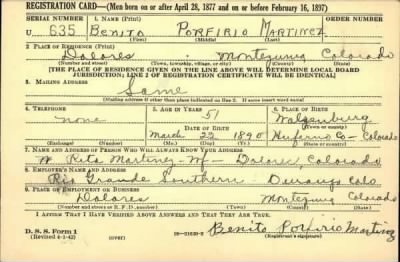 REGISTRATION CARD—(Men born on or after April 28, 1877 and on or before February 16, 1897)
SERIAL NUMBER 1. NAME (Print)
U 635 Benito Porfirio Martinez
(First) (Middle) (Last)
2. PLACE OF RESIDENCE (Print)
Dolores Montezuma Colorado
(Number and street) (Town, township, village, or city) (County) (State)
[THE PLACE OF RESIDENCE GIVEN ON THE LINE ABOVE WILL DETERMINE LOCAL BOARD
JURISDICTION; LINE 2 OF REGISTRATION CERTIFICATE WILL BE IDENTICAL]
3. MAILING ADDRESS
Same
(Mailing address if other than place indicated on line 2. If same insert word same)
4. TELEPHONE 5. AGE IN YEARS 6. PLACE OF BIRTH
none 51 Walsenburg
DATE OF BIRTH (Town or county)
March 22 1890 Colorado
(Exchange) (Number) (Mo.) (Day) (Yr.) (State or country)
7. NAME AND ADDRESS OF PERSON WHO WILL ALWAYS KNOW YOUR ADDRESS
Rita Martinez Dolores, Colorado
8. EMPLOYER'S NAME AND ADDRESS
Rio Grande Southern Durango Colo.
9. PLACE OF EMPLOYMENT OR BUSINESS
Dolores Montezuma Colorado
(Number and street or R. F. D. number) (Town) (County) (State)
I AFFIRM THAT I HAVE VERIFIED ABOVE ANSWERS AND THAT THEY ARE TRUE.
D. S. S. Form 1
(Revised 4-1-42) (over) Benito Porfirio Martinez
(Registrant's signature)